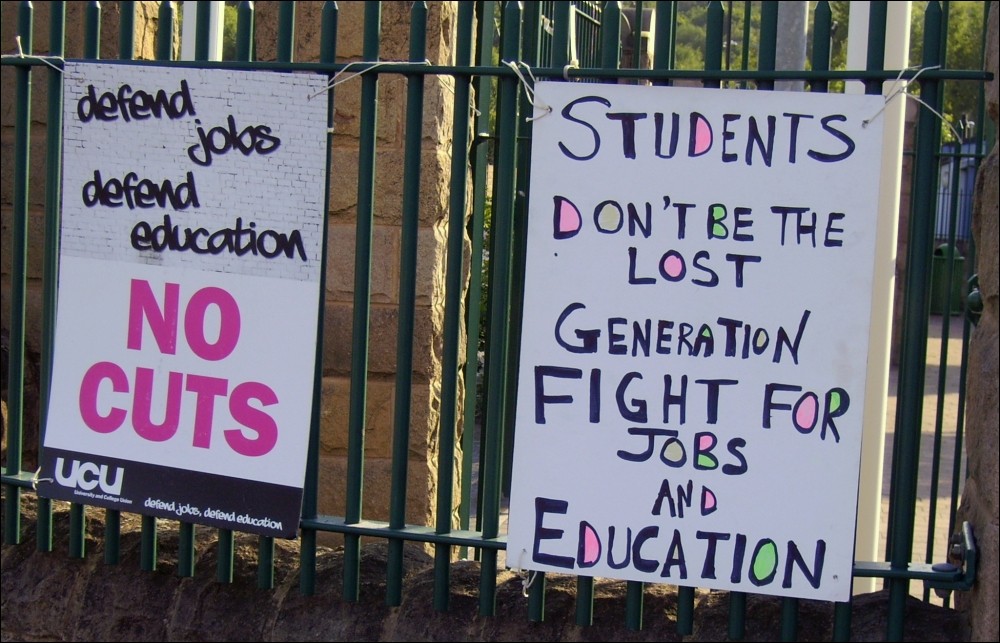 defend
jobs
defend
education
NO
CUTS
UCU
University and College Union
defend jobs, defend education
STUDENTS
DON'T BE THE
LOST
GENERATION
FIGHT FOR
JOBS
AND
EDUCATION